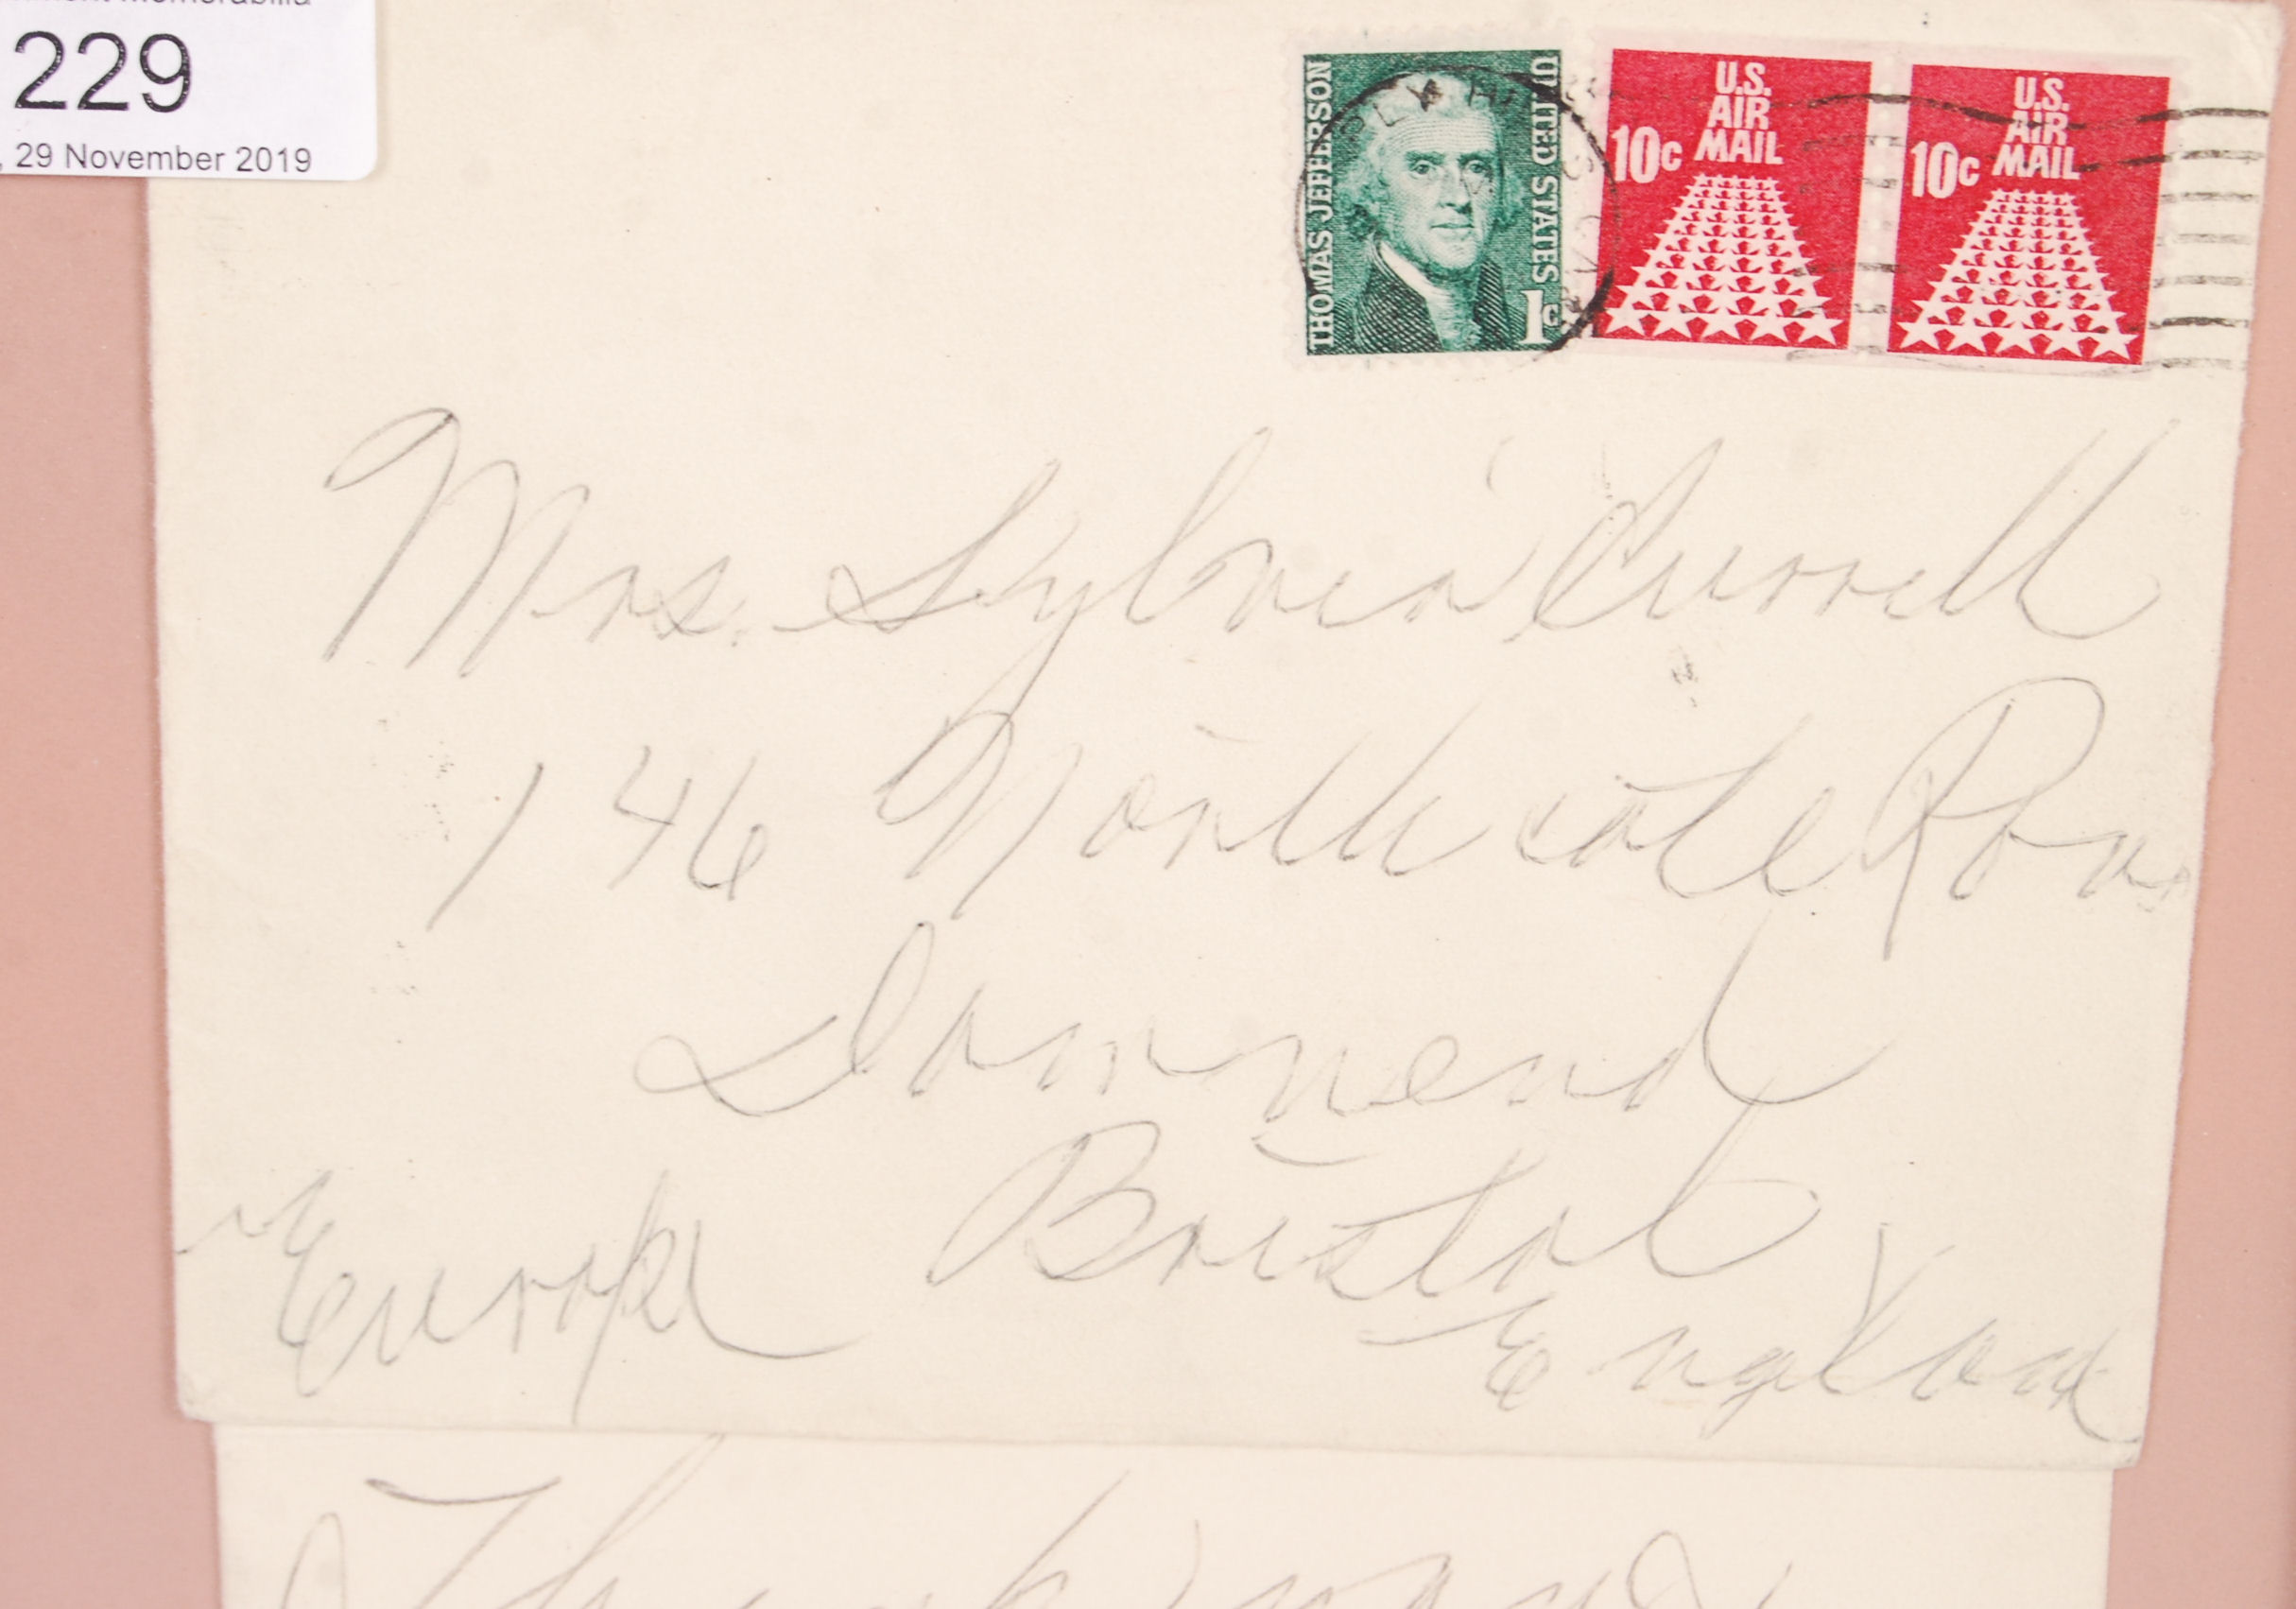 229
, 29 November 2019
THOMAS JEFFERSON
UNITED STATES
1c
U.S.
AIR
MAIL
10c
U.S.
AIR
MAIL
10c
Mrs. Sylvia Currell
146 Northcote Roa
Downend
Bristol
England
Europe
Thank you